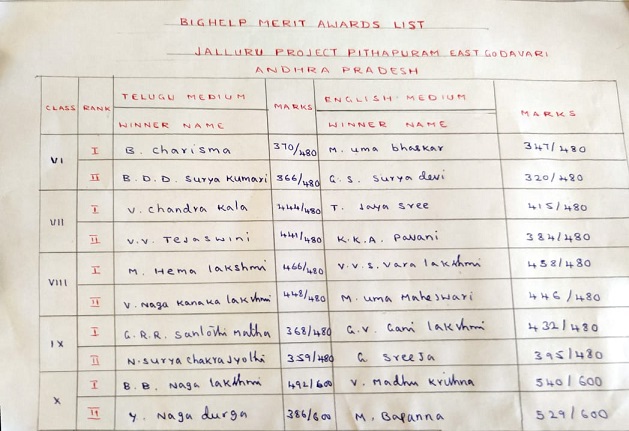 BIGHELP MERIT AWARDS LIST
JALLURU PROJECT PITHAPURAM EAST GODAVARI
ANDHRA PRADESH
CLASS RANK TELUGU MEDIUM WINNER NAME MARKS ENGLISH MEDIUM WINNER NAME MARKS
VI I B. Charisma 370/480 M. uma bhaskar 347/480
II B.D.D. Surya Kumari 366/480 G.S. Surya devi 320/480
VII I V. Chandra Kala 444/480 T. Jaya Sree 415/480
II V.V. Tejaswini 441/480 K.K.A. Pavani 384/480
VIII I M. Hema lakshmi 466/480 V.V.S. Vara lakshmi 458/480
II V. Naga Kanaka lakshmi 448/480 M. uma Maheswari 446/480
IX I G.R.R. Santoshi Matha 368/480 G.V. Gani lakshmi 432/480
II N. Surya chakra Jyothi 359/480 G Sreeja 395/480
X I B.B. Naga lakshmi 492/600 V. Madhu Krishna 540/600
II Y. Naga durga 386/600 M. Bapanna 529/600